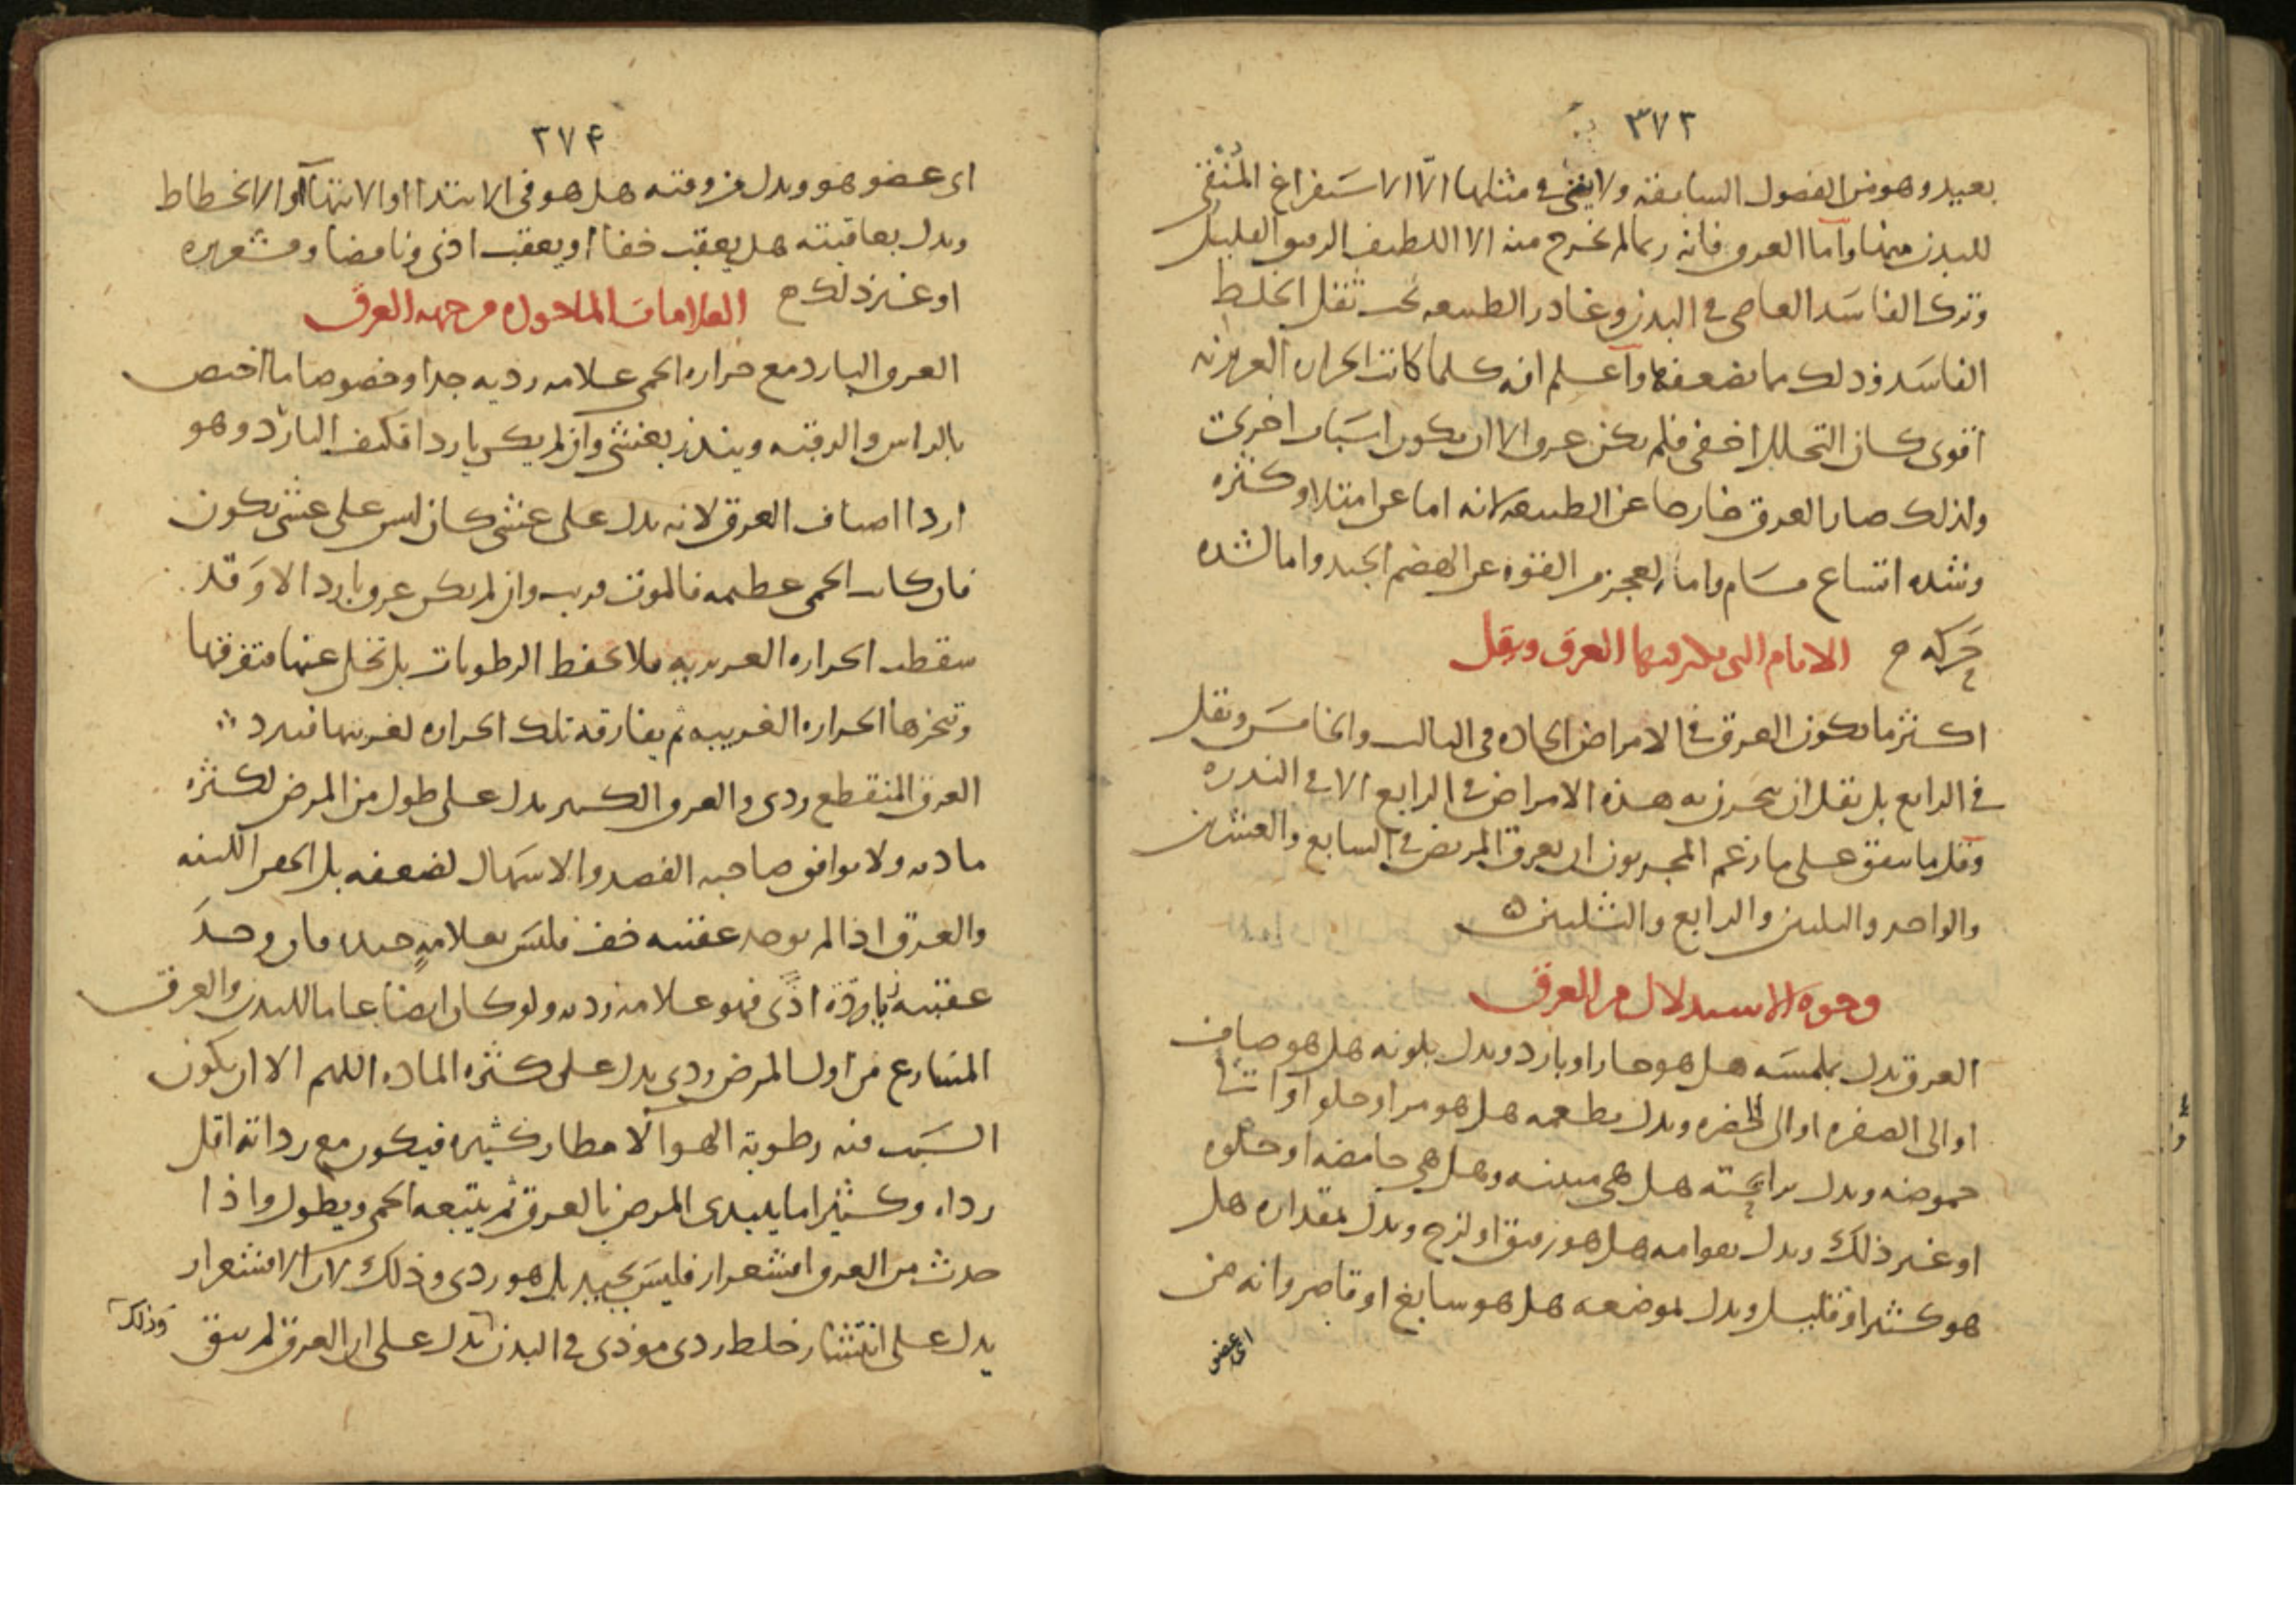 ٣٧٣
بعيد وهو من الفصول السابقة ولا يغني في مثلها الا الاستفراغ المنقي
للبدن منها واما العرق فانه ربما لم يخرج منه الا اللطيف الرقيق القليل
وترك الفاسد العاصي في البدن وغادر الطبيعه تحت ثقل الخلط
الفاسد وذلك مما يضعفها واعلم انه كلما كانت الحراره الغريزيه
اقوى كان التحلل اخفى فلم يكن عرق الا ان يكون اسباب اخرى
ولذلك صار العرق خارجا عن الطبيعه لانه اما عن امتلا وكثره
وشده اتساع مسام واما لعجز من القوه عن الهضم الجيد واما لشده
حركه ح الايام التي يكثر فيها العرق ويقل
اكثر ما يكون العرق في الامراض الحاده في الثالث والخامس ويقل
في الرابع بل يقل ان يبحرن به هذه الامراض في الرابع الا في الندره
وقل ما يتفق على ما زعم المجربون ان يعرق المريض في السابع والعشرين
والواحد والثلثين والرابع والثلثين ه
وجوه الاستدلال من العرق
العرق يدل بملمسه هل هو حار او بارد ويدل بلونه هل هو صاف
او الى الصفره او الى الخضره ويدل بطعمه هل هو مر او حلو او الى
حموضه ويدل برايحته هل هي منتنه وهل هي حامضه او حلوه
او غير ذلك ويدل بقوامه هل هو رقيق او لزج ويدل بمقداره هل
هو كثير او قليل ويدل بموضعه هل هو سابغ او قاصر وانه من
اى عضو
٣٧۴
اى عضو هو ويدل من وقته هل هو في الابتدا او الانتهاء او الانحطاط
ويدل بعاقبته هل يعقب خفا او يعقب اذى ونافضا وقشعريره
او غير ذلك ح العلامات الماخوذه من جهه العرق
العرق البارد مع حراره الحمى علامه رديه جدا وخصوصا ما اختص
بالراس والرقبه وينذر بغشي وان لم يكن باردا فكيف البارد وهو
اردا اصناف العرق لانه يدل على غشي كان ليس على غشي يكون
فان كانت الحمى عظيمه فالموت قريب وان لم يكن عرق بارد الا وقد
سقطت الحراره الغريزيه فلا تحفظ الرطوبات بل تخلي عنها متفرقها
وتبخرها الحراره الغريبه ثم يفارقه تلك الحراره لغربتها فيبرد
العرق المنقطع ردى والعرق الكثير يدل على طول من المرض لكثره
مادته ولا يوافق صاحبه الفصد والاسهال لضعفه بل الحقن اللينه
والعرق اذا لم يوجد عقبيه خف فليس بعلامه جيده فان وجد
عقبيه زيادة اذى فهو علامه رديه ولو كان ايضا عاما للبدن والعرق
المتسارع من اول المرض ردى يدل على كثره الماده اللهم الا ان يكون
السبب فيه رطوبة الهوآ لامطار كثيره فيكون مع رداته اقل
رداه وكثيرا ما يبتدى المرض بالعرق ثم يتبعه الحمى ويطول واذا
حدث من العرق اقشعرار فليس بجيد بل هو ردى وذلك لان الاقشعرار
يدل على انتشار خلط ردى موذى في البدن يدل على ان العرق لم ينق
وذلك